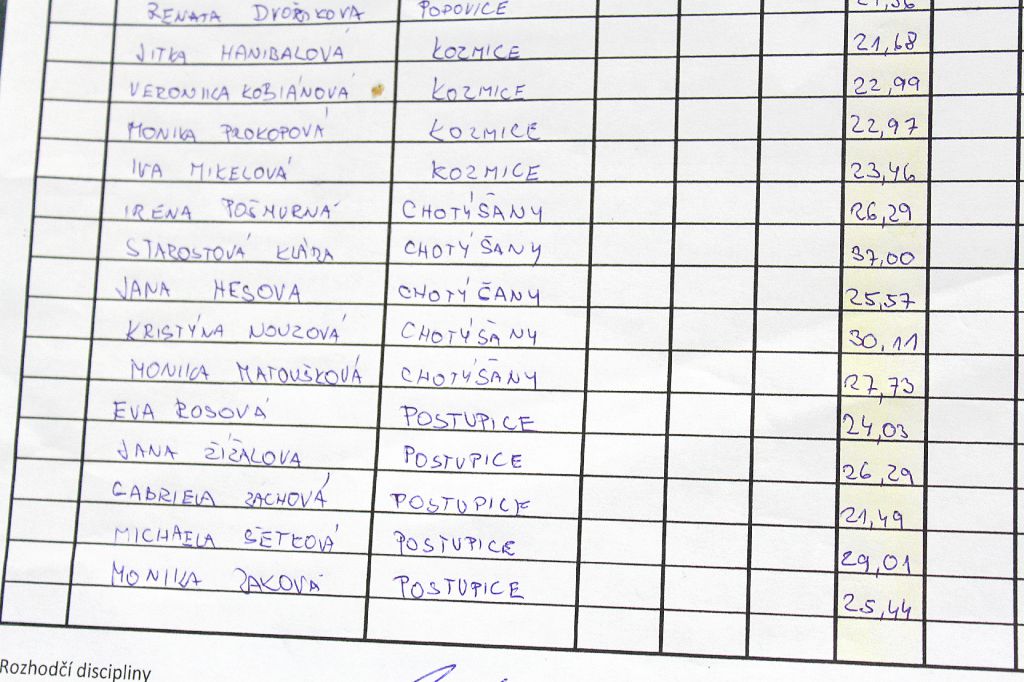 RENATA DVOŘÁKOVÁ POPOVICE 21,56
JITKA HANIBALOVÁ KOZMICE 21,68
VERONIKA KOBIÁNOVÁ KOZMICE 22,99
MONIKA PROKOPOVÁ KOZMICE 22,97
IVA MIKELOVÁ KOZMICE 23,46
IRENA POŠMURNÁ CHOTÝŠANY 26,29
STAROSTOVÁ KLÁRA CHOTÝŠANY 37,00
JANA HESOVA CHOTÝČANY 25,57
KRISTÝNA NOUZOVÁ CHOTÝŠANY 30,11
MONIKA MATOUŠKOVÁ CHOTÝŠANY 27,73
EVA ROSOVÁ POSTUPICE 24,03
JANA ŽÍŽALOVA POSTUPICE 26,29
GABRIELA ZACHOVÁ POSTUPICE 21,49
MICHAELA SETKOVÁ POSTUPICE 29,01
MONIKA ŽAKOVÁ POSTUPICE 25,44
Rozhodčí discipliny